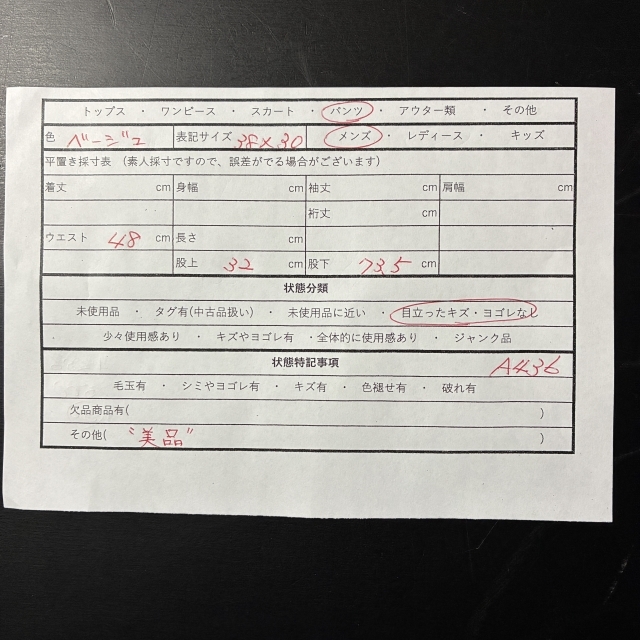 トップス ・ ワンピース ・ スカート ・ パンツ ・ アウター類 ・ その他
色 ベージュ 表記サイズ 38×30 メンズ ・ レディース ・ キッズ
平置き採寸表 (素人採寸ですので、誤差がでる場合がございます)
着丈 cm 身幅 cm 袖丈 cm 肩幅 cm
裄丈 cm
ウエスト 48 cm 長さ cm
股上 32 cm 股下 73.5 cm
状態分類
未使用品 ・ タグ有(中古品扱い) ・ 未使用に近い ・ 目立ったキズ・ヨゴレなし
少々使用感あり ・ キズやヨゴレ有 ・全体的に使用感あり ・ ジャンク品
状態特記事項 A436
毛玉有 ・ シミやヨゴレ有 ・ キズ有 ・ 色褪せ有 ・ 破れ有
欠品商品有( )
その他( “美品” )